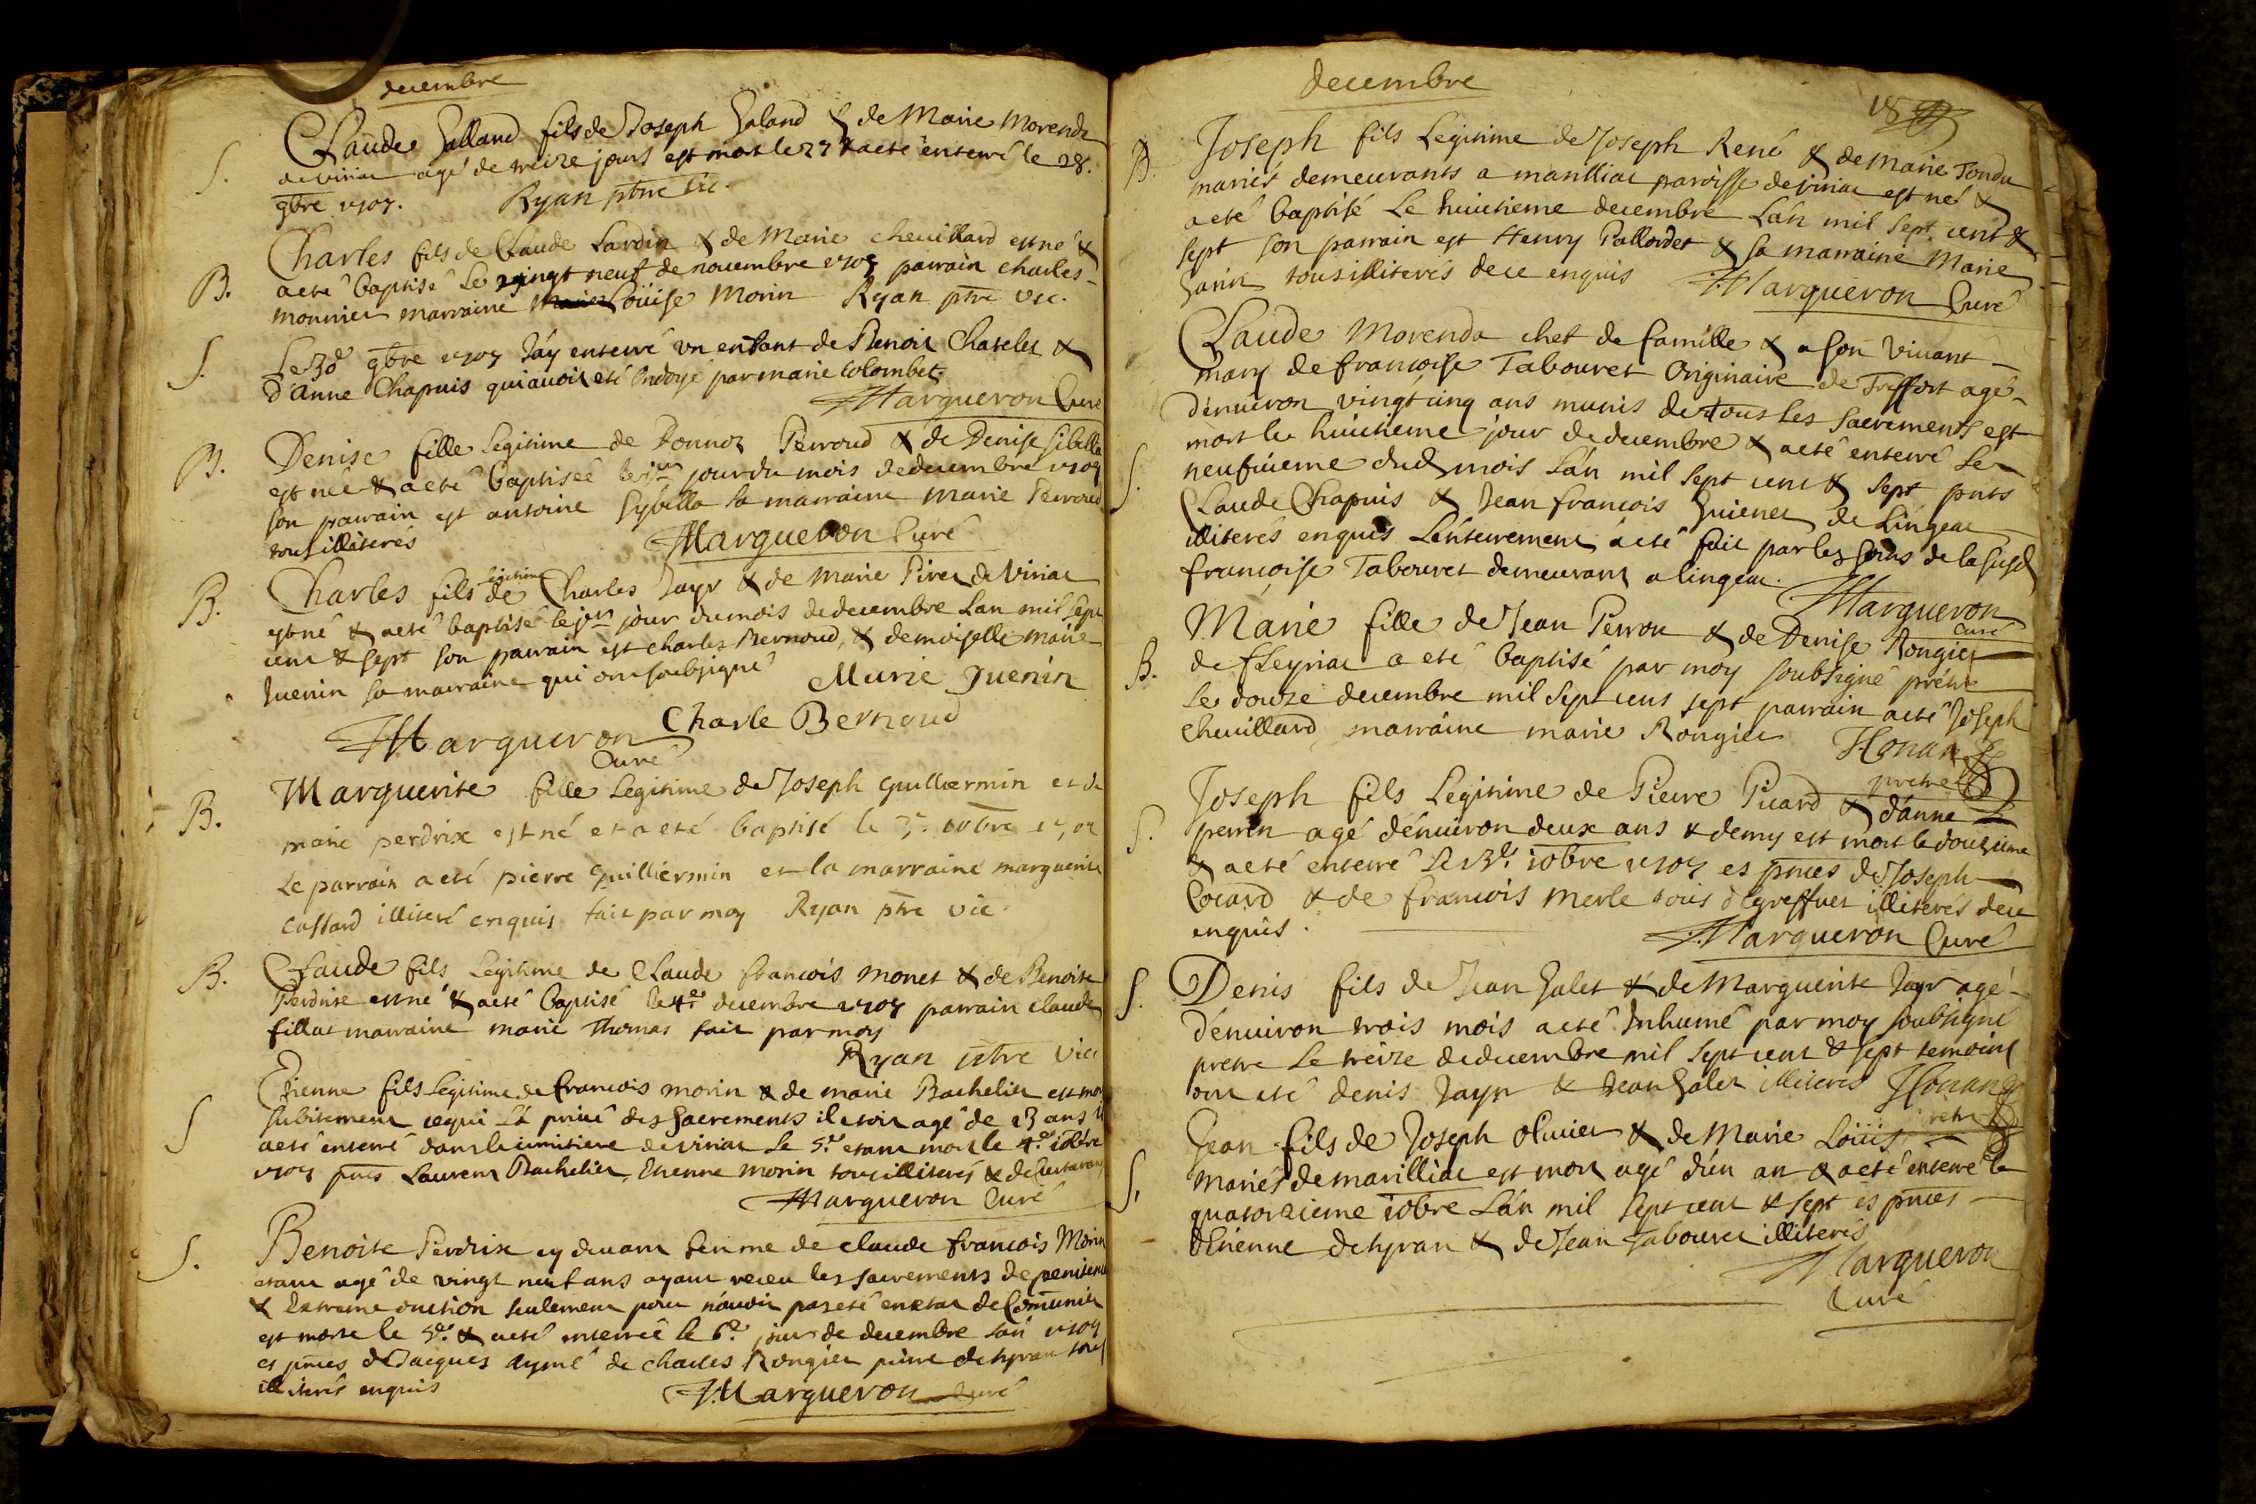 decembre
S.
Claude Galland fils de Joseph Galand & de Marie Morenda
de viriac agé de treize jours est mort le 27 & a eté enterré le 28.
9bre 1707. Ryan ptre vic.
B.
Charles fils de Claude Lardin & de Marie chevillard est né &
a eté baptisé Le vingt neuf de novembre 1707 parrain charles
monnier marraine Loüise Morin Ryan ptre vic.
S.
Le 30e 9bre 1707 J'ay enterré un enfant de Benoit Chatelet &
d'Anne Chapuis qui avoit eté Ondoyé par marie Colombet.
Margueron Curé
B.
Denise fille Legitime de Donnoz Perroud & de Denise sibella
est née & a eté baptiseé le jer jour du mois de decembre 1707
son parrain est antoine Sybella la marraine marie Perroud
tous illiterés Margueron Curé
B.
Charles fils legitime de Charles Jayr & de Marie Piret de Viriat
est né & a eté baptisé le jer jour du mois de decembre Lan mil sept
cent & sept son parrain est charles Bernoud, & demoiselle marie
Juenin sa marraine qui ont soubsigné Marie Juenin
Charle Bernoud
Margueron
Curé
B.
Marguerite fille Legitime de Joseph guilliermin et de
marie perdrix est né et a eté baptisé le 3e. 10bre 1707
Le parrain a eté pierre guilliermin et la marraine marguerite
Cassard illiteré enquis fait par moy Ryan ptre vic.
B.
Claude fils Legitime de Claude francois Monet & de Benoite
Perdrix est né & a eté baptisé le 4e. decembre 1707 parrain claude
fillat marraine marie Thomas fait par moy
Ryan ptre vic
S
Etienne fils Legitime de francois morin & de marie Bachelier est mort
subitement ce qui L'a privé des Sacrements il etoit agé de 23 ans il
a eté enterré dans le cimitiere de viriat le 5e. etant mort le 4e. 10bre
1707 pnts Laurent Bachelier, Etienne Morin tous illiterés &
Margueron Curé
S.
Benoite Perdrix cy devant femme de claude francois Monin
etant agé de vingt neuf ans ayant receu les sacrements de penitence
& Extreme onction seulement pour n'avoir pas eté en etat de Comunier
est morte le 5e. & a eté enterreé le 6e. jour de decembre L'an 1707
es pnces de Jacques Aymé de charles Rongier pierre dehyran tous
illiterés enquis Margueron Curé
decembre
18
B.
Joseph fils Legitime de Joseph René & de Marie Tondu
mariés demeurants a marilliac paroisse de viriac est né &
a eté baptisé Le huitieme decembre L'an mil sept cent &
sept son parrain est Henry Pallordet & sa marraine Marie
Garin tous illiterés de ce enquis Margueron Curé
S.
Claude Morenda chef de famille & a son vivant
mary de francoise Tabouret Originaire de Treffort agé
d'environ vingt cinq ans munis de tous les sacrements est
mort le huitieme jour de decembre & a eté enterré le
neufvieme dud mois L'an mil sept cent & sept pnts
Claude Chapuis & Jean francois Guienet de Lingeat
illiterés enquis L'enterrement a eté fait par les soins de la susd
francoise Tabouret demeurant a lingeat.
Margueron
Curé
B.
Marie fille de Jean Perron & de Denise Rongier
de fleyriat a eté baptisé par moy soubsigné prétre
le douze decembre mil sept cens sept parrain a eté Joseph
chevillard, marraine marie Rongier
Honan
pretre
S.
Joseph fils Legitime de Pierre Picard & d'anne
perrin agé d'environ deux ans & demy est mort le douzieme
& a eté enterré Le 13e. 10bre 1707 es pnces de Joseph
Cocard & de francois Merle tous d'Egreffuet illiterés de ce
enquis.
Margueron Curé
S.
Denis fils de Jean Galet & de Marguerite Jayr agé
d'environ trois mois a eté Inhumé par moy soubsigné
pretre Le treize de decembre mil sept cent & sept temoins
ont eté denis Jayr & Jean Galet illiterés Honan
pretre
S.
Jean fils de Joseph olivier & de Marie Loüis
Mariés de marilliac est mort agé d'un an & a eté enterré le
quatorzieme 10bre L'an mil sept cent & sept es pnces
d'Etienne dehyran & de Jean Tabouret illiterés
Margueron
Curé